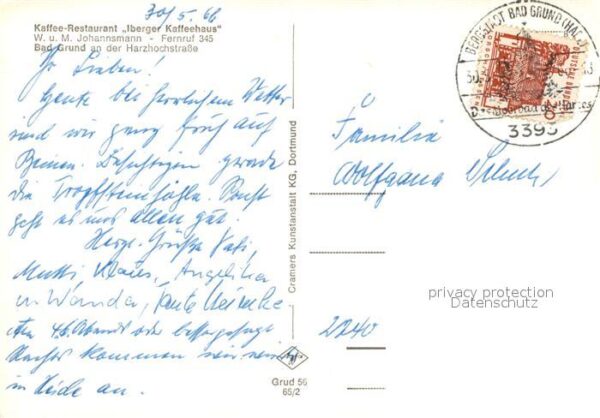 30/5.66
Kaffee-Restaurant „Iberger Kaffeehaus"
W. u. M. Johannsmann - Fernruf 345
Bad Grund an der Harzhochstraße
Ihr Lieben!
Heute bei herrlichem Wetter
sind wir ganz früh auf
Besichtigen gerade
die Tropfsteinhöhle. Sonst
geht es uns allen gut.
Herzl. Grüße Vati,
Mutti, Klaus, Angelika
u. Wanda, Tante
Am 4.6. Abends oder
Nachts kommen wir
in an.
Cramers Kunstanstalt KG, Dortmund
Grud 56
65/2
BERGSTADT BAD GRUND (HARZ)
3395
Familie
Wolfgang
2240
privacy protection
Datenschutz